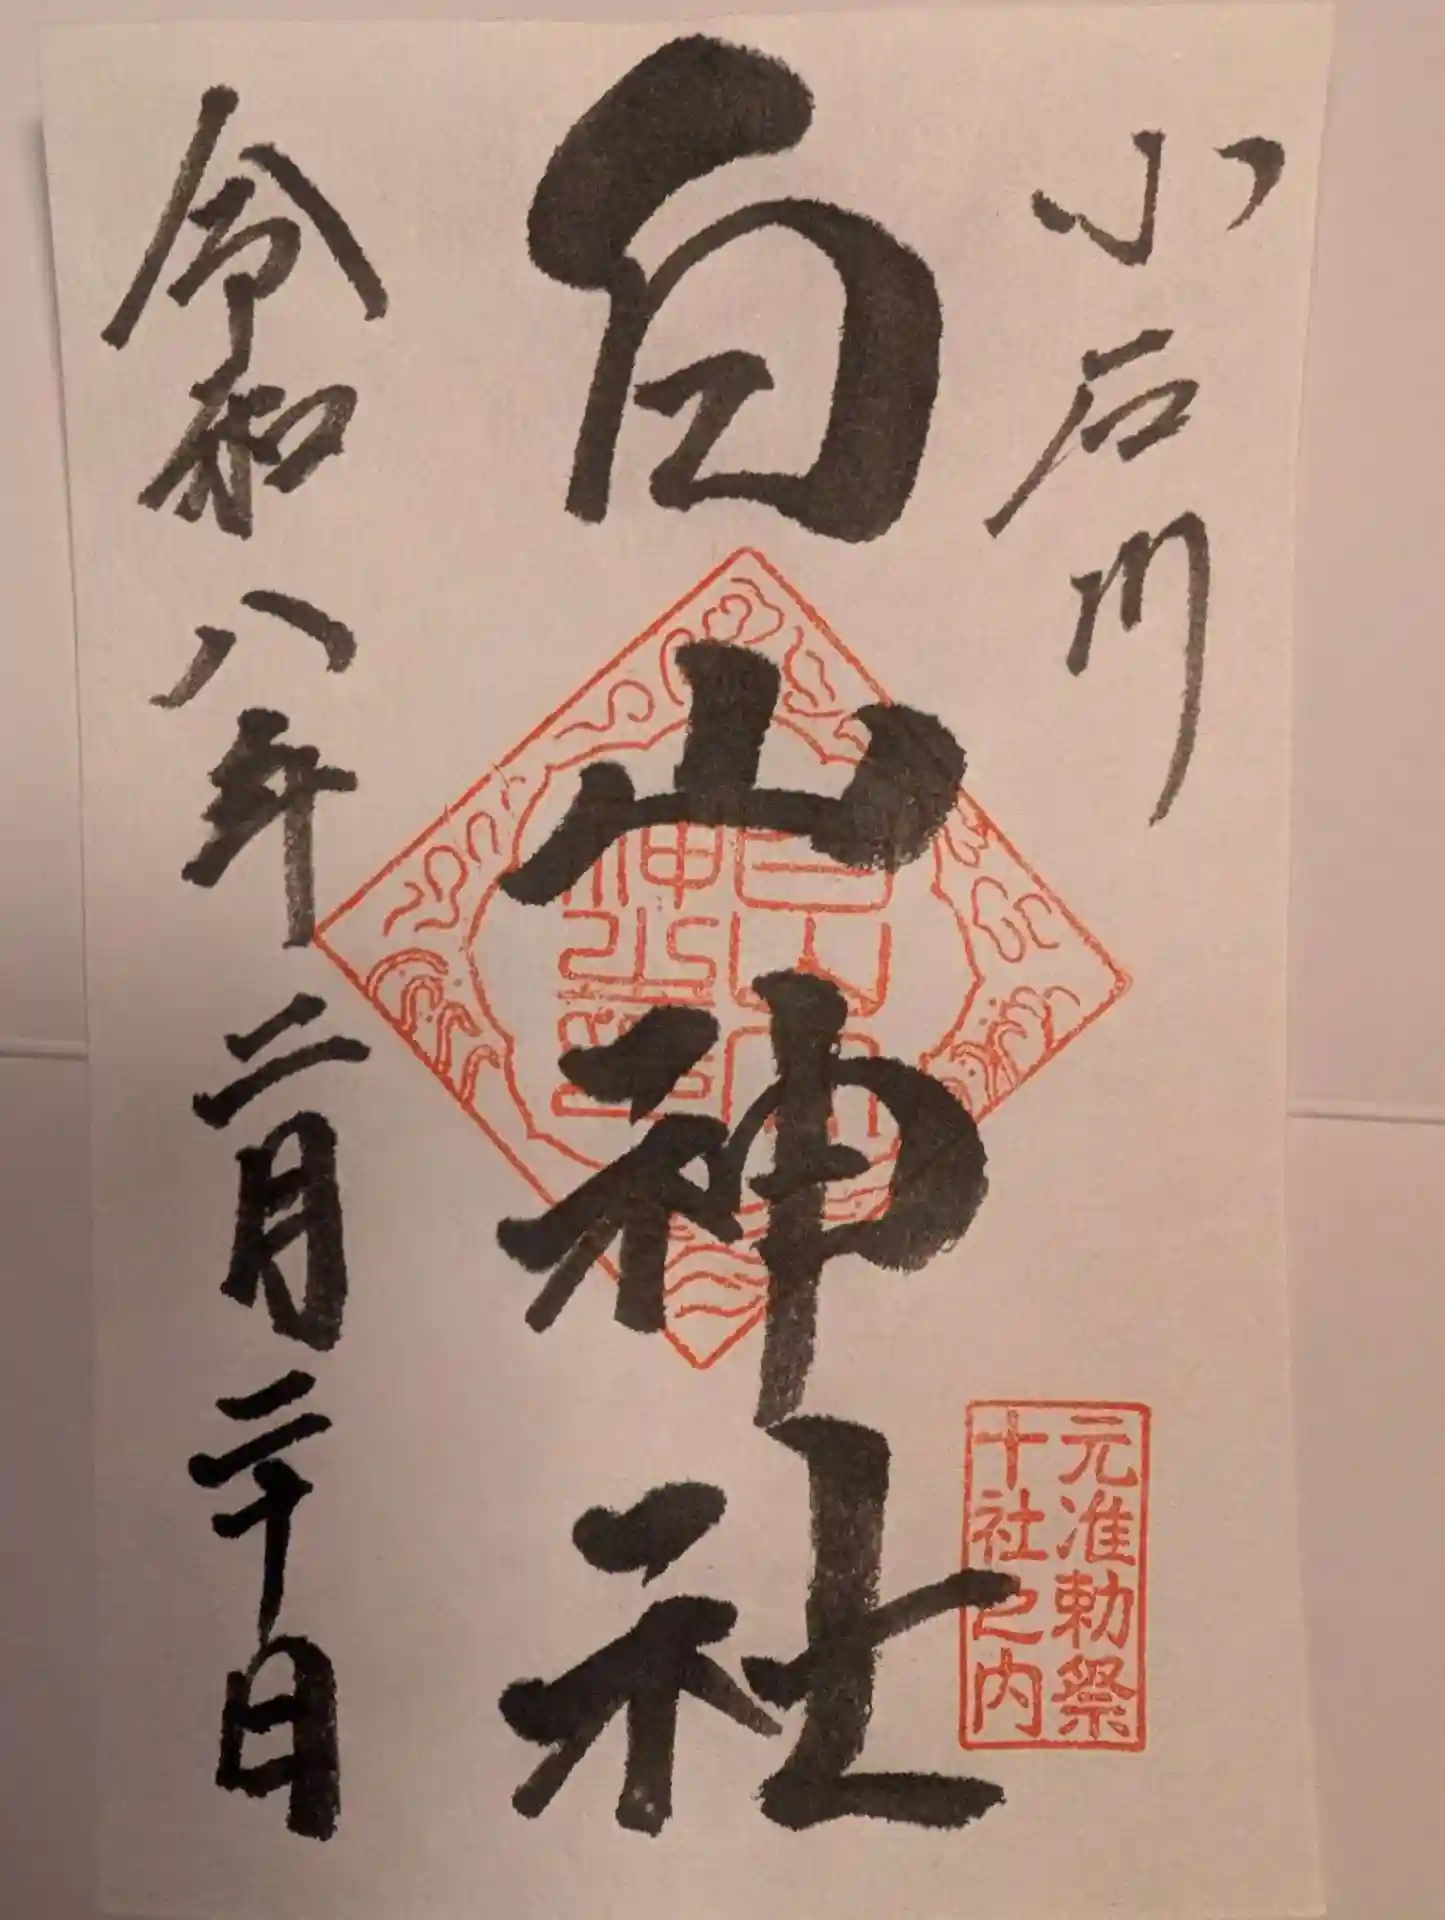 小石川
白山神社
令和八年二月二十日
元准勅祭
十社之内
白山神社之印